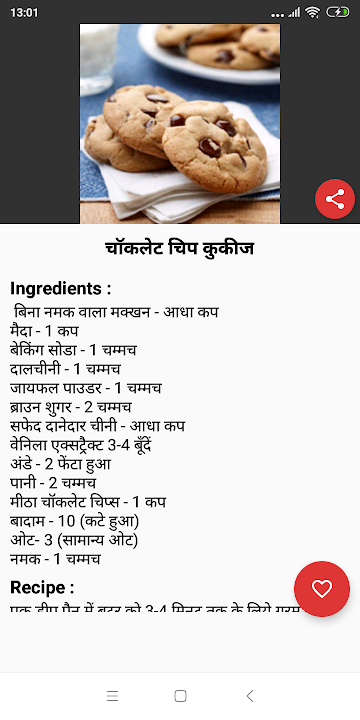 13:01
चॉकलेट चिप कुकीज
Ingredients :
बिना नमक वाला मक्खन - आधा कप
मैदा - 1 कप
बेकिंग सोडा - 1 चम्मच
दालचीनी - 1 चम्मच
जायफल पाउडर - 1 चम्मच
ब्राउन शुगर - 2 चम्मच
सफेद दानेदार चीनी - आधा कप
वेनिला एक्सट्रैक्ट 3-4 बूँदें
अंडे - 2 फेंटा हुआ
पानी - 2 चम्मच
मीठा चॉकलेट चिप्स - 1 कप
बादाम - 10 (कटे हुआ)
ओट- 3 (सामान्य ओट)
नमक - 1 चम्मच
Recipe :
एक डीप पैन में बटर को 3-4 मिनट तक के लिये गरम